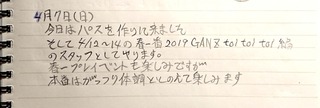 4月7日(日)
今日はパスを作りに来ました
そして4/12〜14の春一番2019 GANZ toi toi toi 編
のスタッフとしてやります。
春一プレイベントも楽しみですが
本番はがっつり体調ととのえて楽しみます